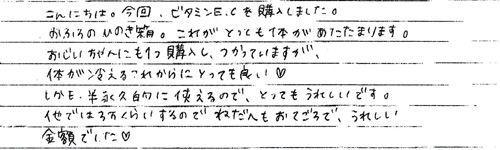 こんにちは。今回、ビタミンE.Cを購入しました。
おふろの ひのき箱。これが とっても体が あたたまります。
おじいちゃんにも1つ購入し、つかっていますが、
体が冷えるこれからにとっても良い♡
しかも、半永久的に使えるので、とってもうれしいです。
他では3万くらいするので ねだんも おてごろで、うれしい
金額でした♡